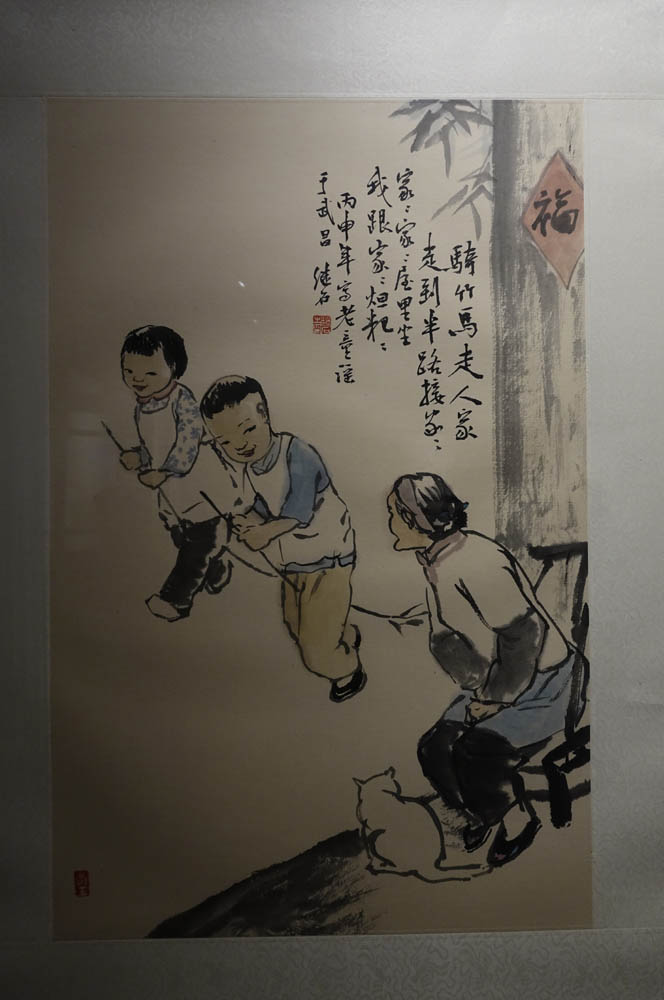 騎竹馬走人家
走到半路接家〻
家〻家〻屋里坐
我跟家〻烜粑〻
丙申年寫老童谣
于武昌 继石
福